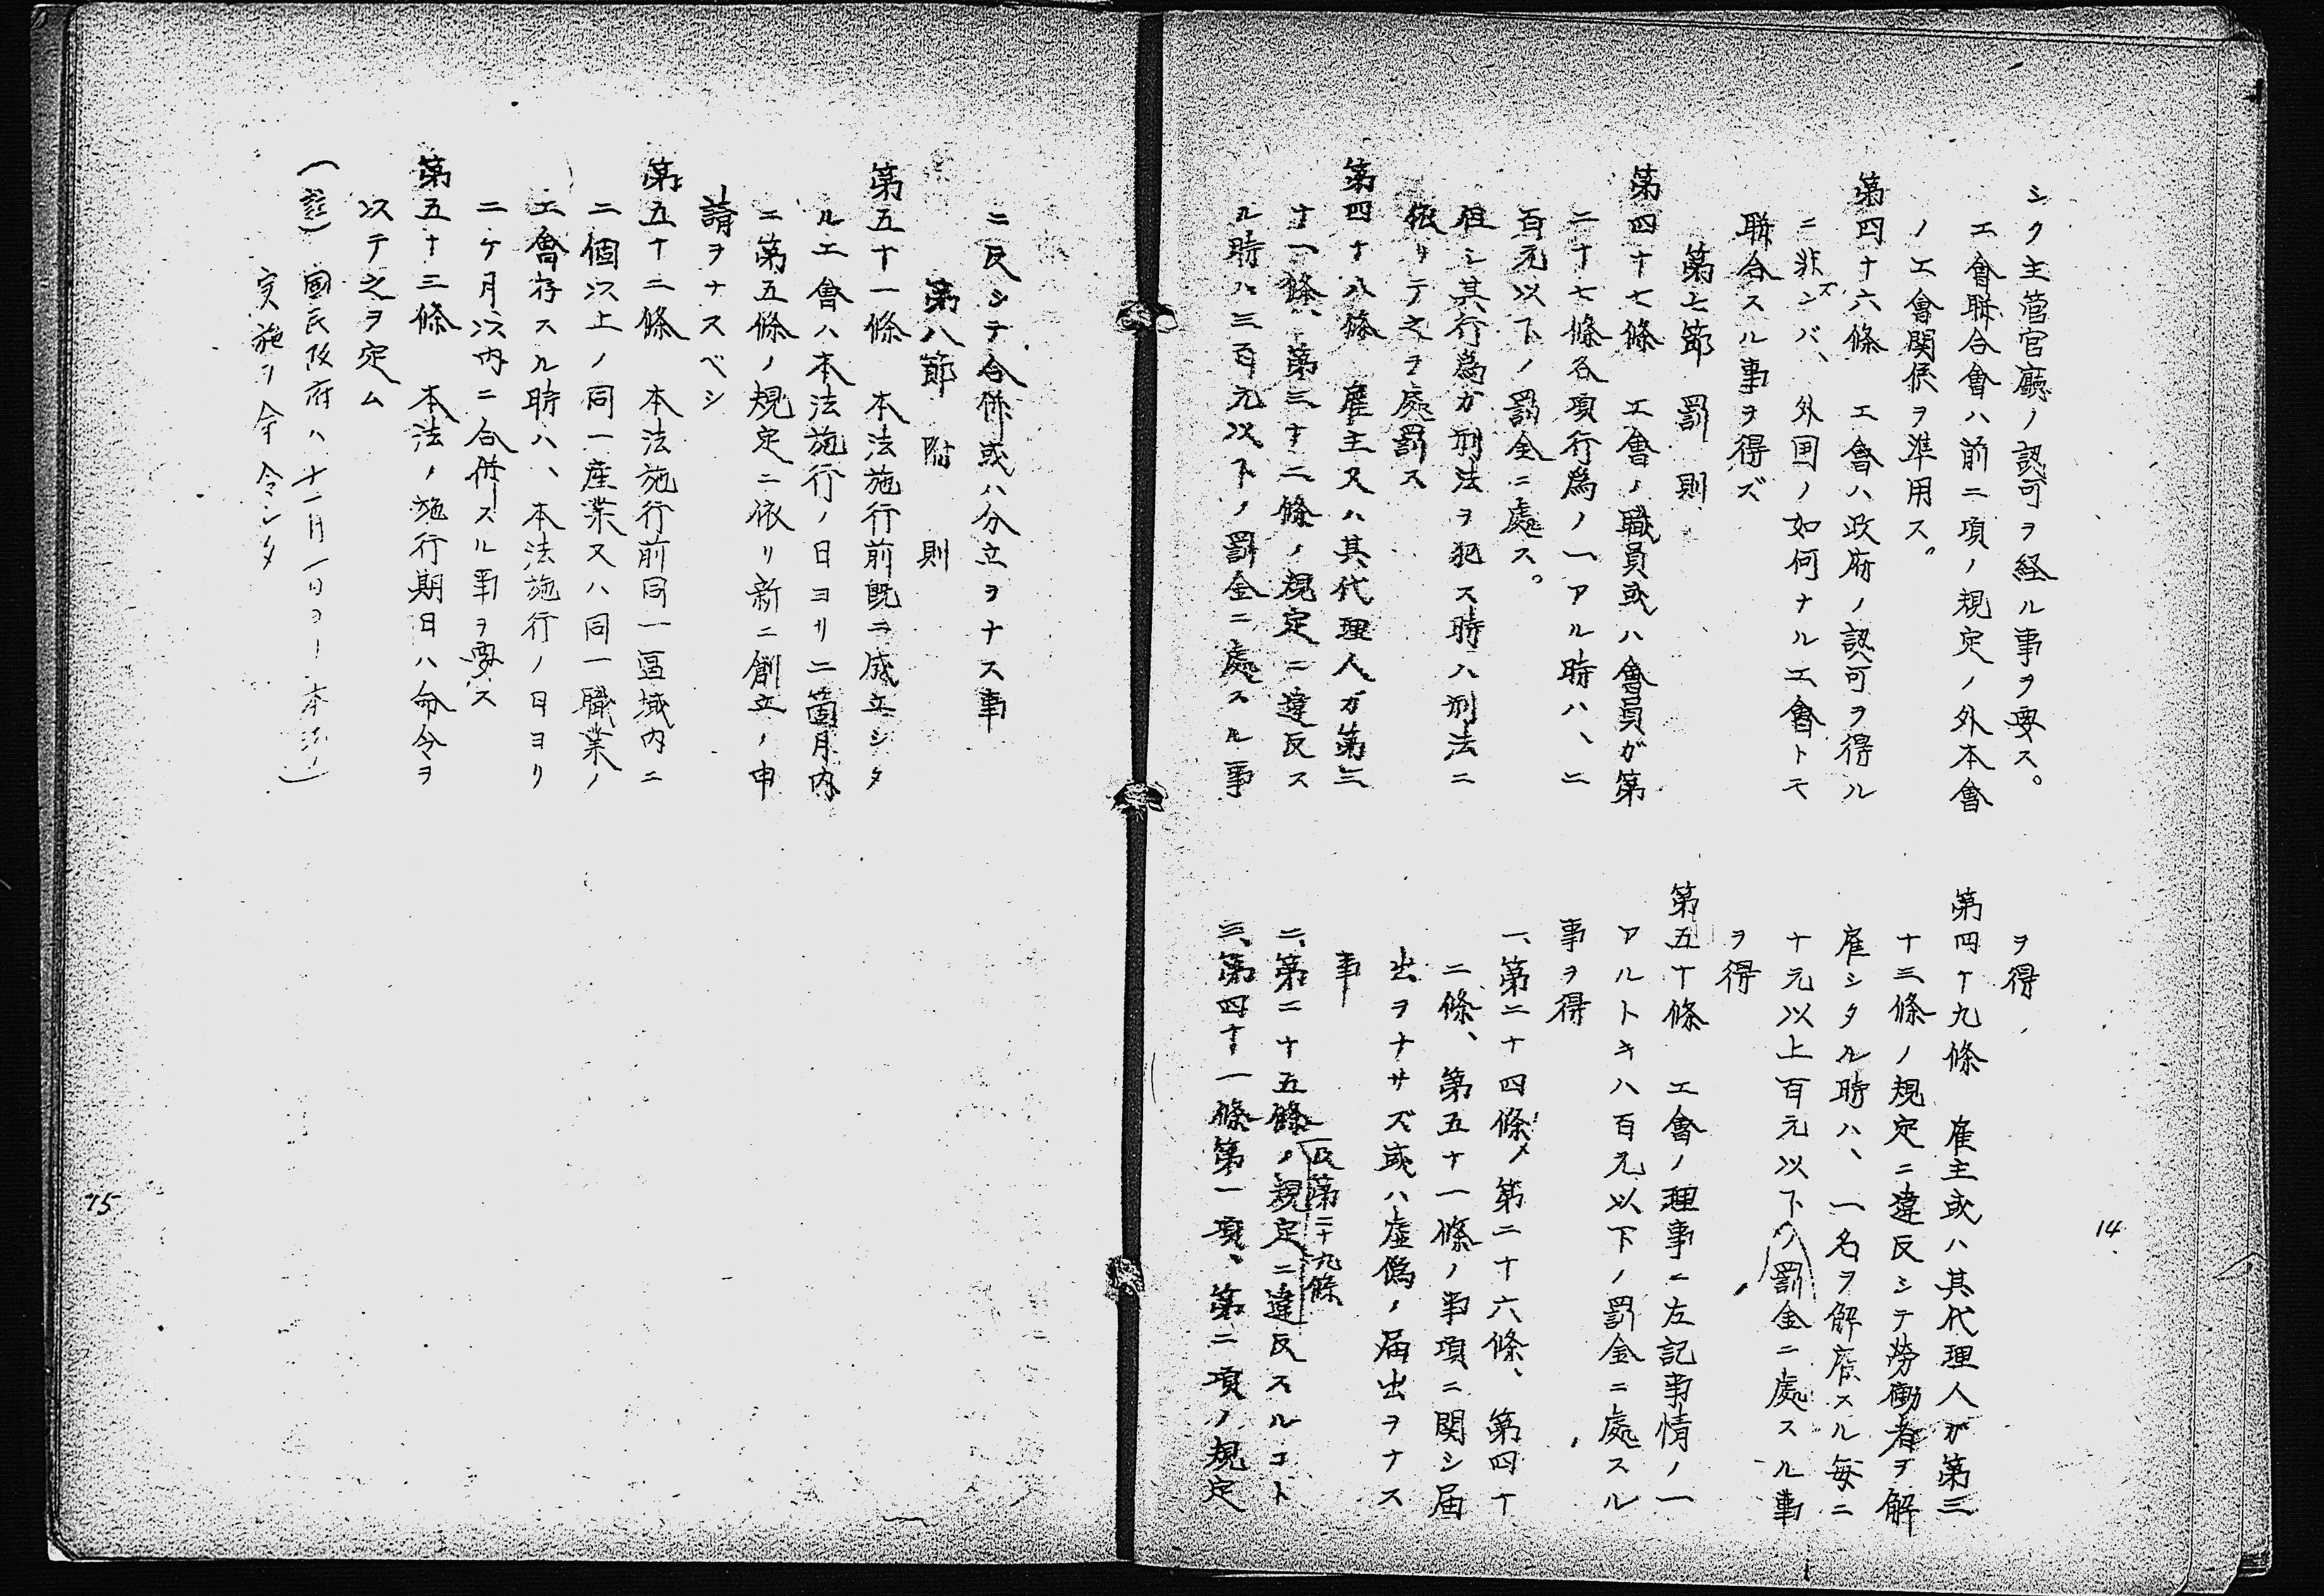 シク主菅官廳ノ認可ヲ経ル事ヲ要ス。
工會聯合會ハ前二項ノ規定ノ外本會
ノ工會関係ヲ準用ス。
第四十六條　工會ハ政府ノ認可ヲ得ル
ニ非ズンバ、外囯ノ如何ナル工會トモ
聯合スル事ヲ得ズ
第七節　罰　則
第四十七條　工會ノ職員或ハ會員ガ第
二十七條各項行爲ノ一アル時ハ、二
百元以下ノ罰金ニ處ス。
但シ其行爲ガ刑法ヲ犯ス時ハ刑法ニ
依リテ之ヲ處罰ス
第四十八條　雇主又ハ其代理人ガ第三
十一條、第三十二條ノ規定ニ違反ス
ル時ハ三百元以下ノ罰金ニ處スル事
ヲ得
第四十九條　雇主或ハ其代理人ガ第三
十三條ノ規定ニ違反シテ勞働者ヲ解
雇シタル時ハ、一名ヲ解雇スル毎ニ
十元以上百元以下ノ罰金ニ處スル事
ヲ得
第五十條　工會ノ理事ニ左記事情ノ一
アルトキハ百元以下ノ罰金ニ處スル
事ヲ得
一、第二十四條、第二十六條、第四十
二條、第五十一條ノ事項ニ関シ届
出ヲナサズ或ハ虚僞ノ届出ヲナス
事
二、第二十五條及第二十九條ノ規定ニ違反スルコト
三、第四十一條第一項、第二項ノ規定
14
ニ反シテ合併或ハ分立ヲナス事
第八節　附　則
第五十一條　本法施行前既ニ成立シタ
ル工會ハ本法施行ノ日ヨリ二箇月内
ニ第五條ノ規定ニ依リ新ニ創立ノ申
請ヲナスベシ
第五十二條　本法施行前同一區域内ニ
二個以上ノ同一産業又ハ同一職業ノ
工會存スル時ハ、本法施行ノ日ヨリ
二ケ月以内ニ合併スル事ヲ要ス
第五十三條　本法ノ施行期日ハ命令ヲ
以テ之ヲ定ム
（註）國民政府ハ十一月一日ヨリ本法ノ
実施ヲ命令シタ）
15